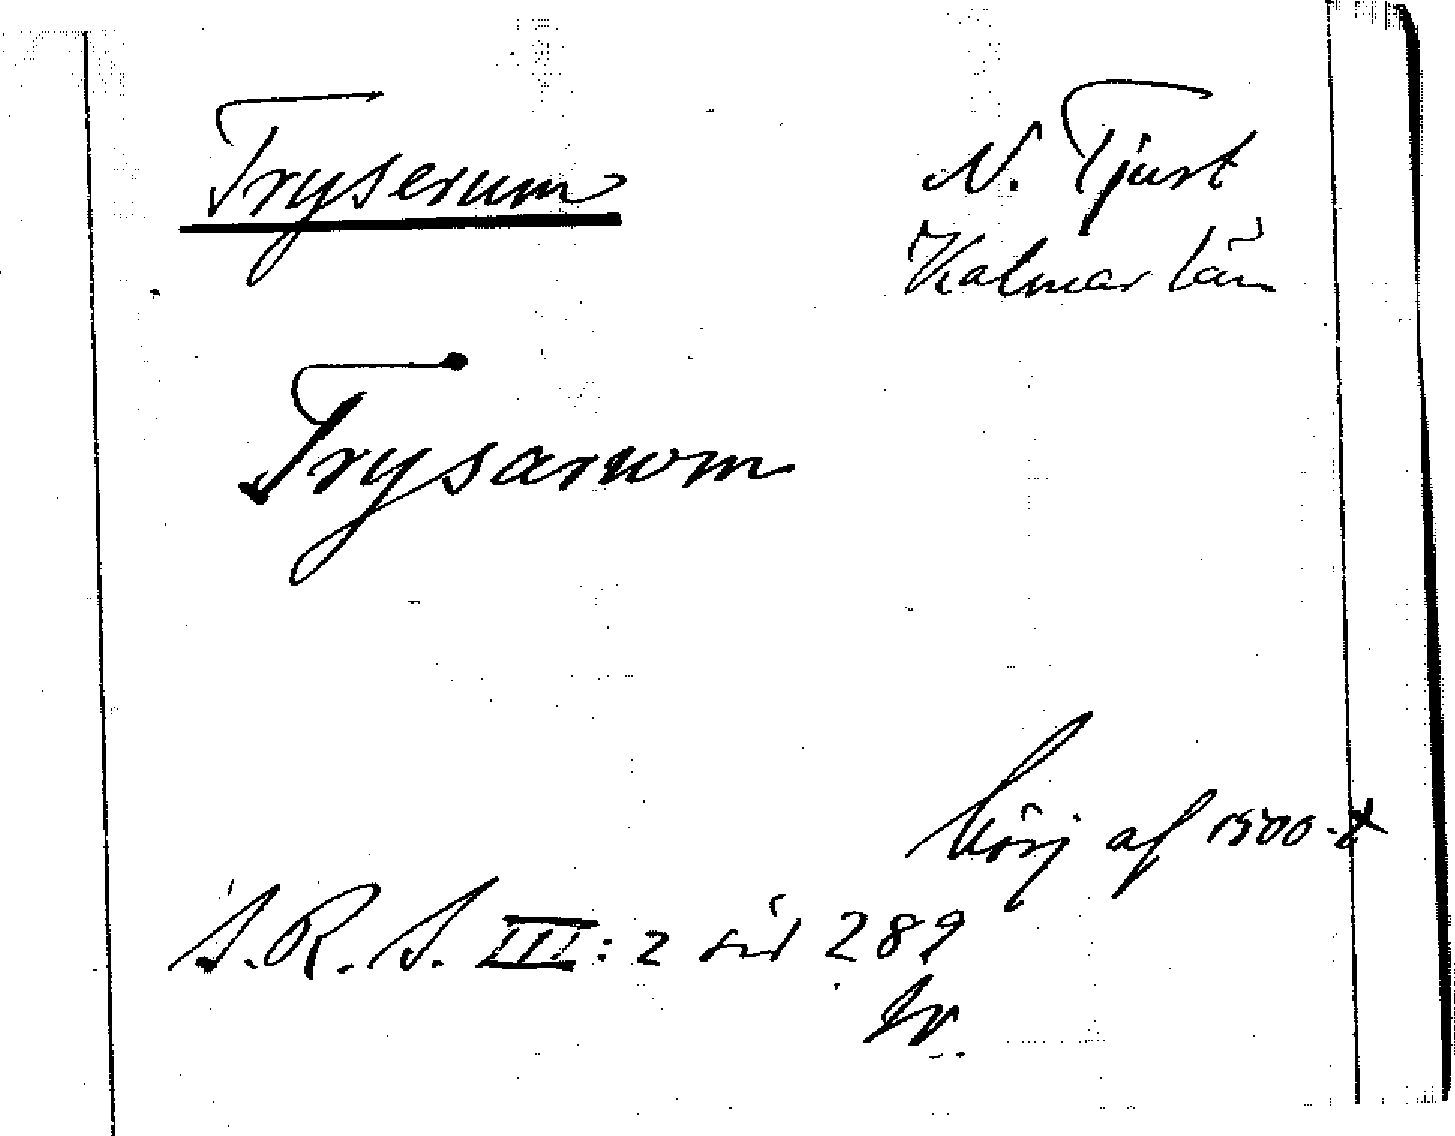 Tryserum
N. Tjust
Kalmar län
Trysarum
börj af 1500-t
S.R.S. III:2 sid 289
tr.